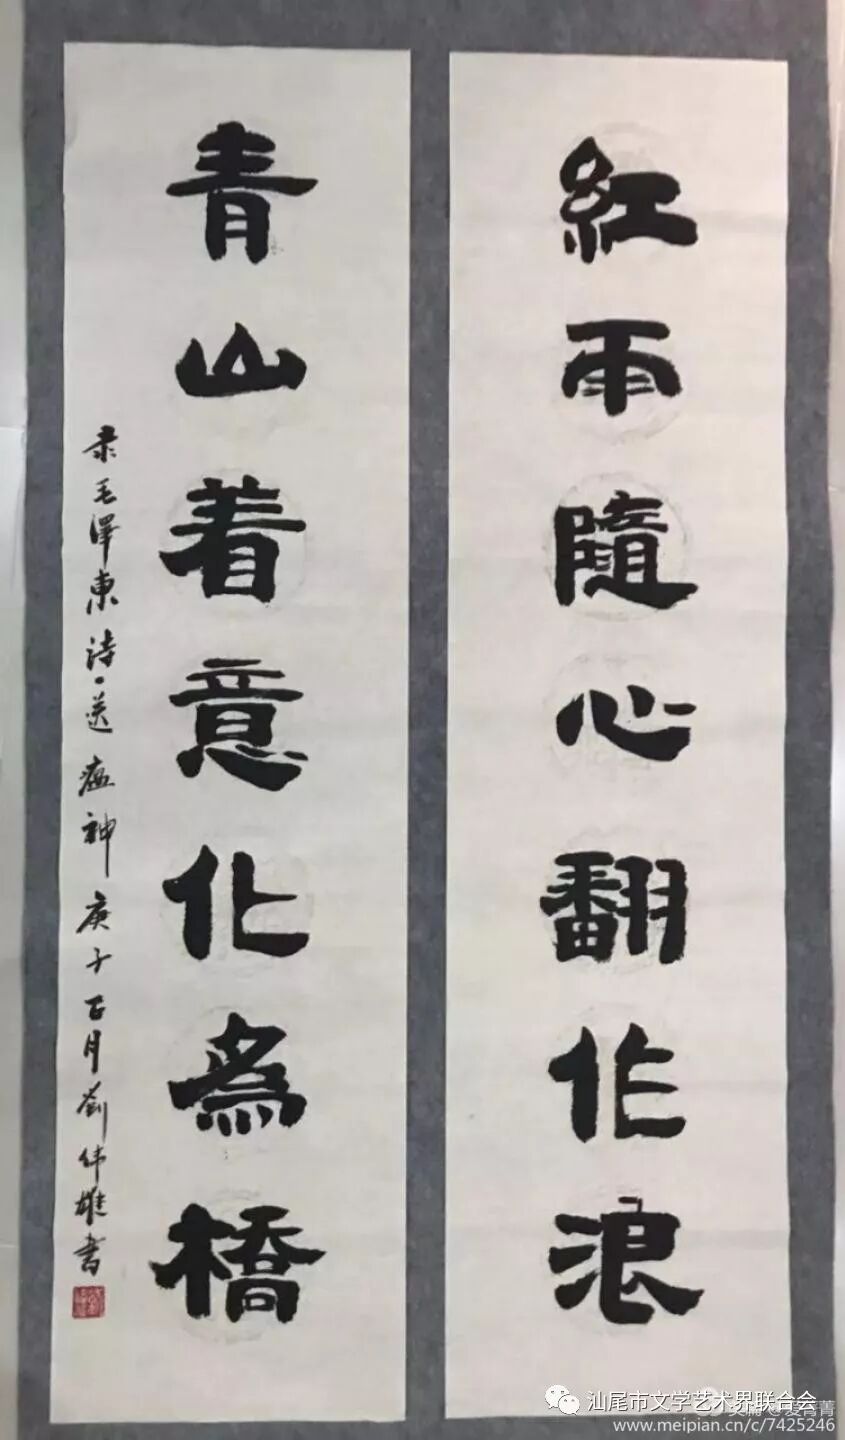 紅雨隨心翻作浪
青山着意化為橋
录毛澤東詩·送瘟神庚子百月劉偉雄書
汕尾市文学艺术界联合会
美篇@爱菁菁
www.meipian.cn/c/7425246